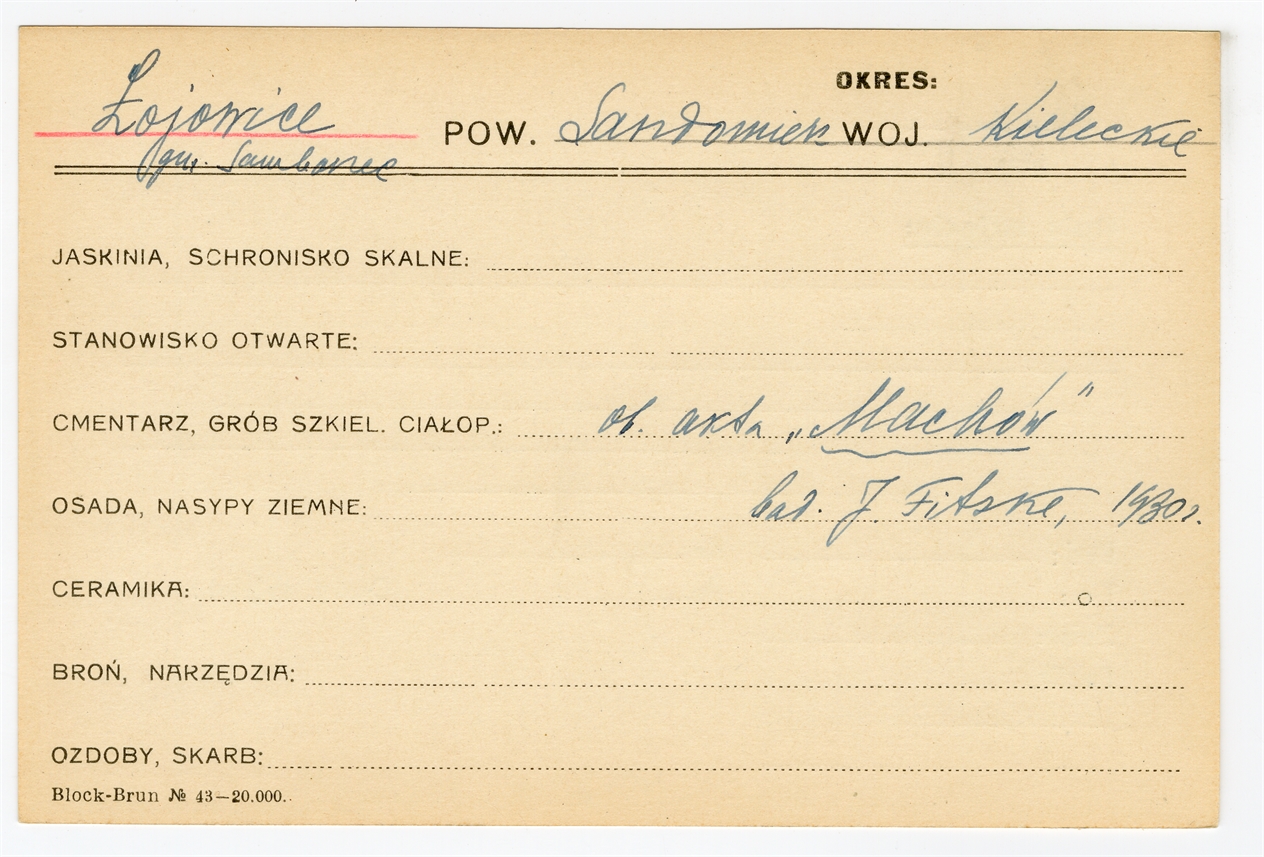 OKRES:
Łojowice POW. Sandomierz WOJ. Kieleckie
gm. Samborzec
JASKINIA, SCHRONISKO SKALNE:
STANOWISKO OTWARTE:
CMENTARZ, GRÓB SZKIEL. CIAŁOP.: ob. akta „Machów"
OSADA, NASYPY ZIEMNE: bad. J. Fitzke, 1930 r.
CERAMIKA:
BROŃ, NARZĘDZIA:
OZDOBY, SKARB:
Block-Brun № 43—20.000.